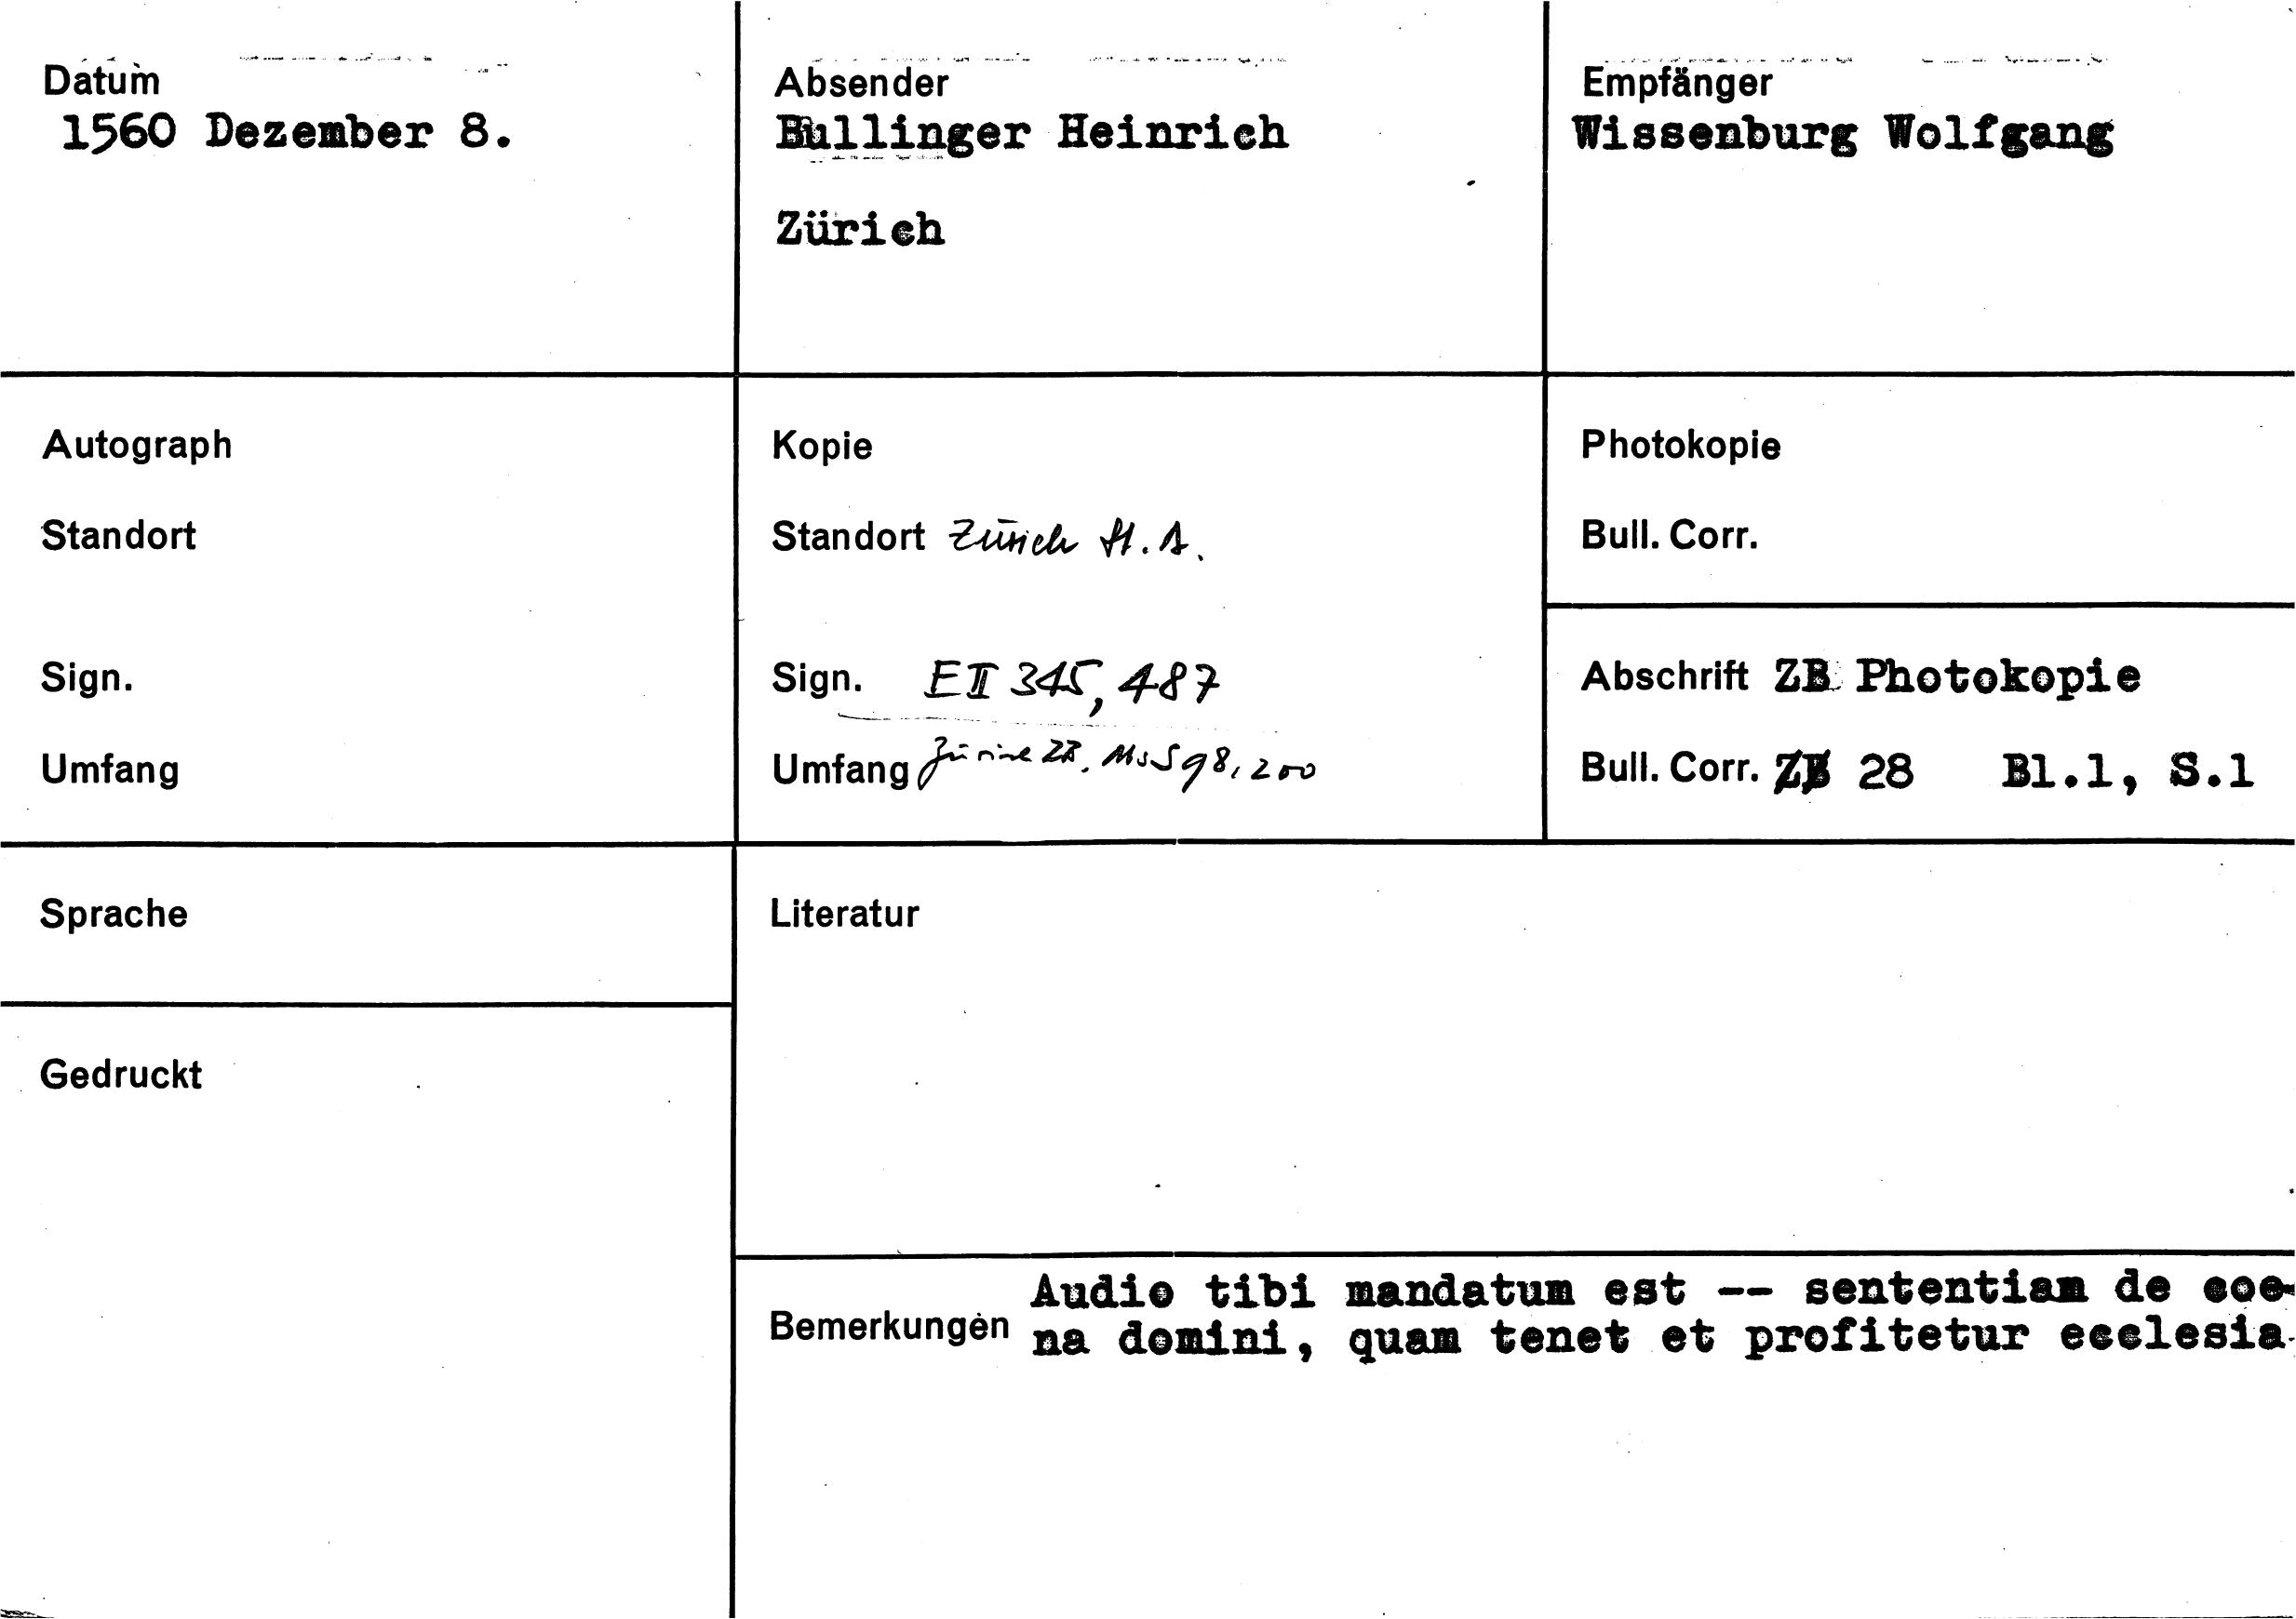 Datum
1560 Dezember 8.
Absender
Bullinger Heinrich
Zürich
Empfänger
Wissenburg Wolfgang
Autograph
Standort
Sign.
Umfang
Kopie
Standort Zürich St. A.
Sign. E II 345, 487
Umfang Zürich ZB. Ms S 98, 200
Photokopie
Bull. Corr.
Abschrift ZB Photokopie
Bull. Corr. ZB 28 Bl.1, S.1
Sprache
Gedruckt
Literatur
Bemerkungen
Audio tibi mandatum est -- sententiam de coe-
na domini, quam tenet et profitetur ecclesia